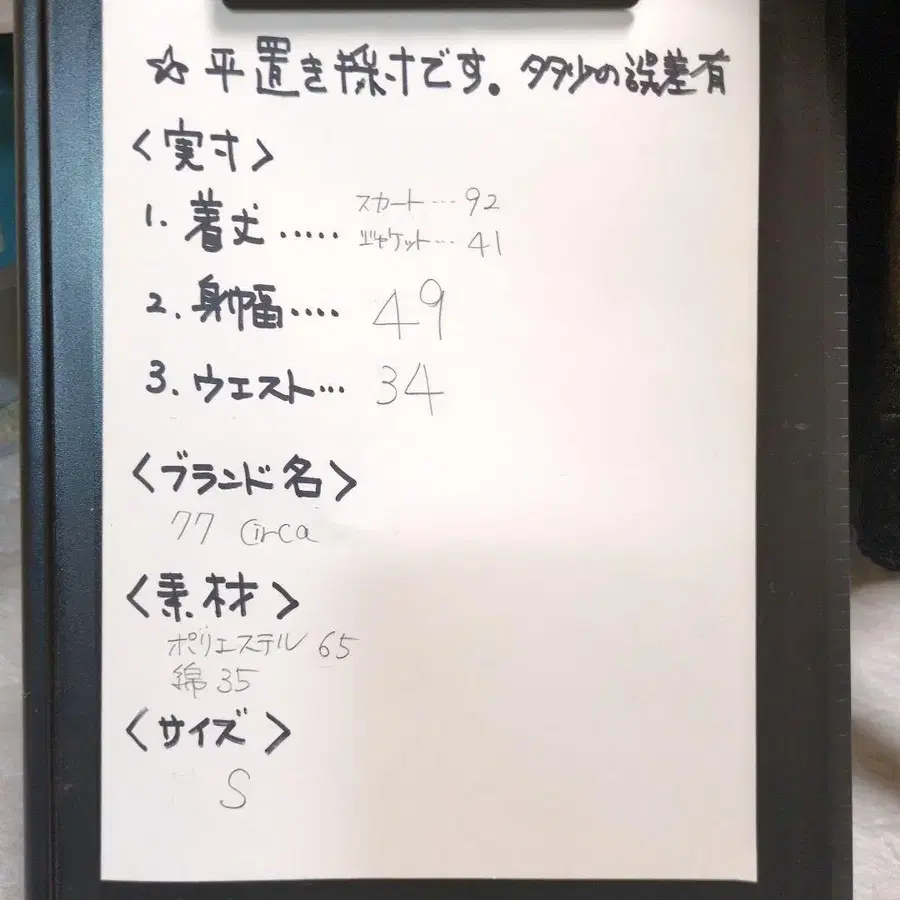 ☆平置き採寸です。多少の誤差有
〈実寸〉
1. 着丈..... スカート…92
ジャケット…41
2. 身幅.... 49
3. ウエスト... 34
〈ブランド名〉
77 circa
〈素材〉
ポリエステル 65
綿 35
〈サイズ〉
S